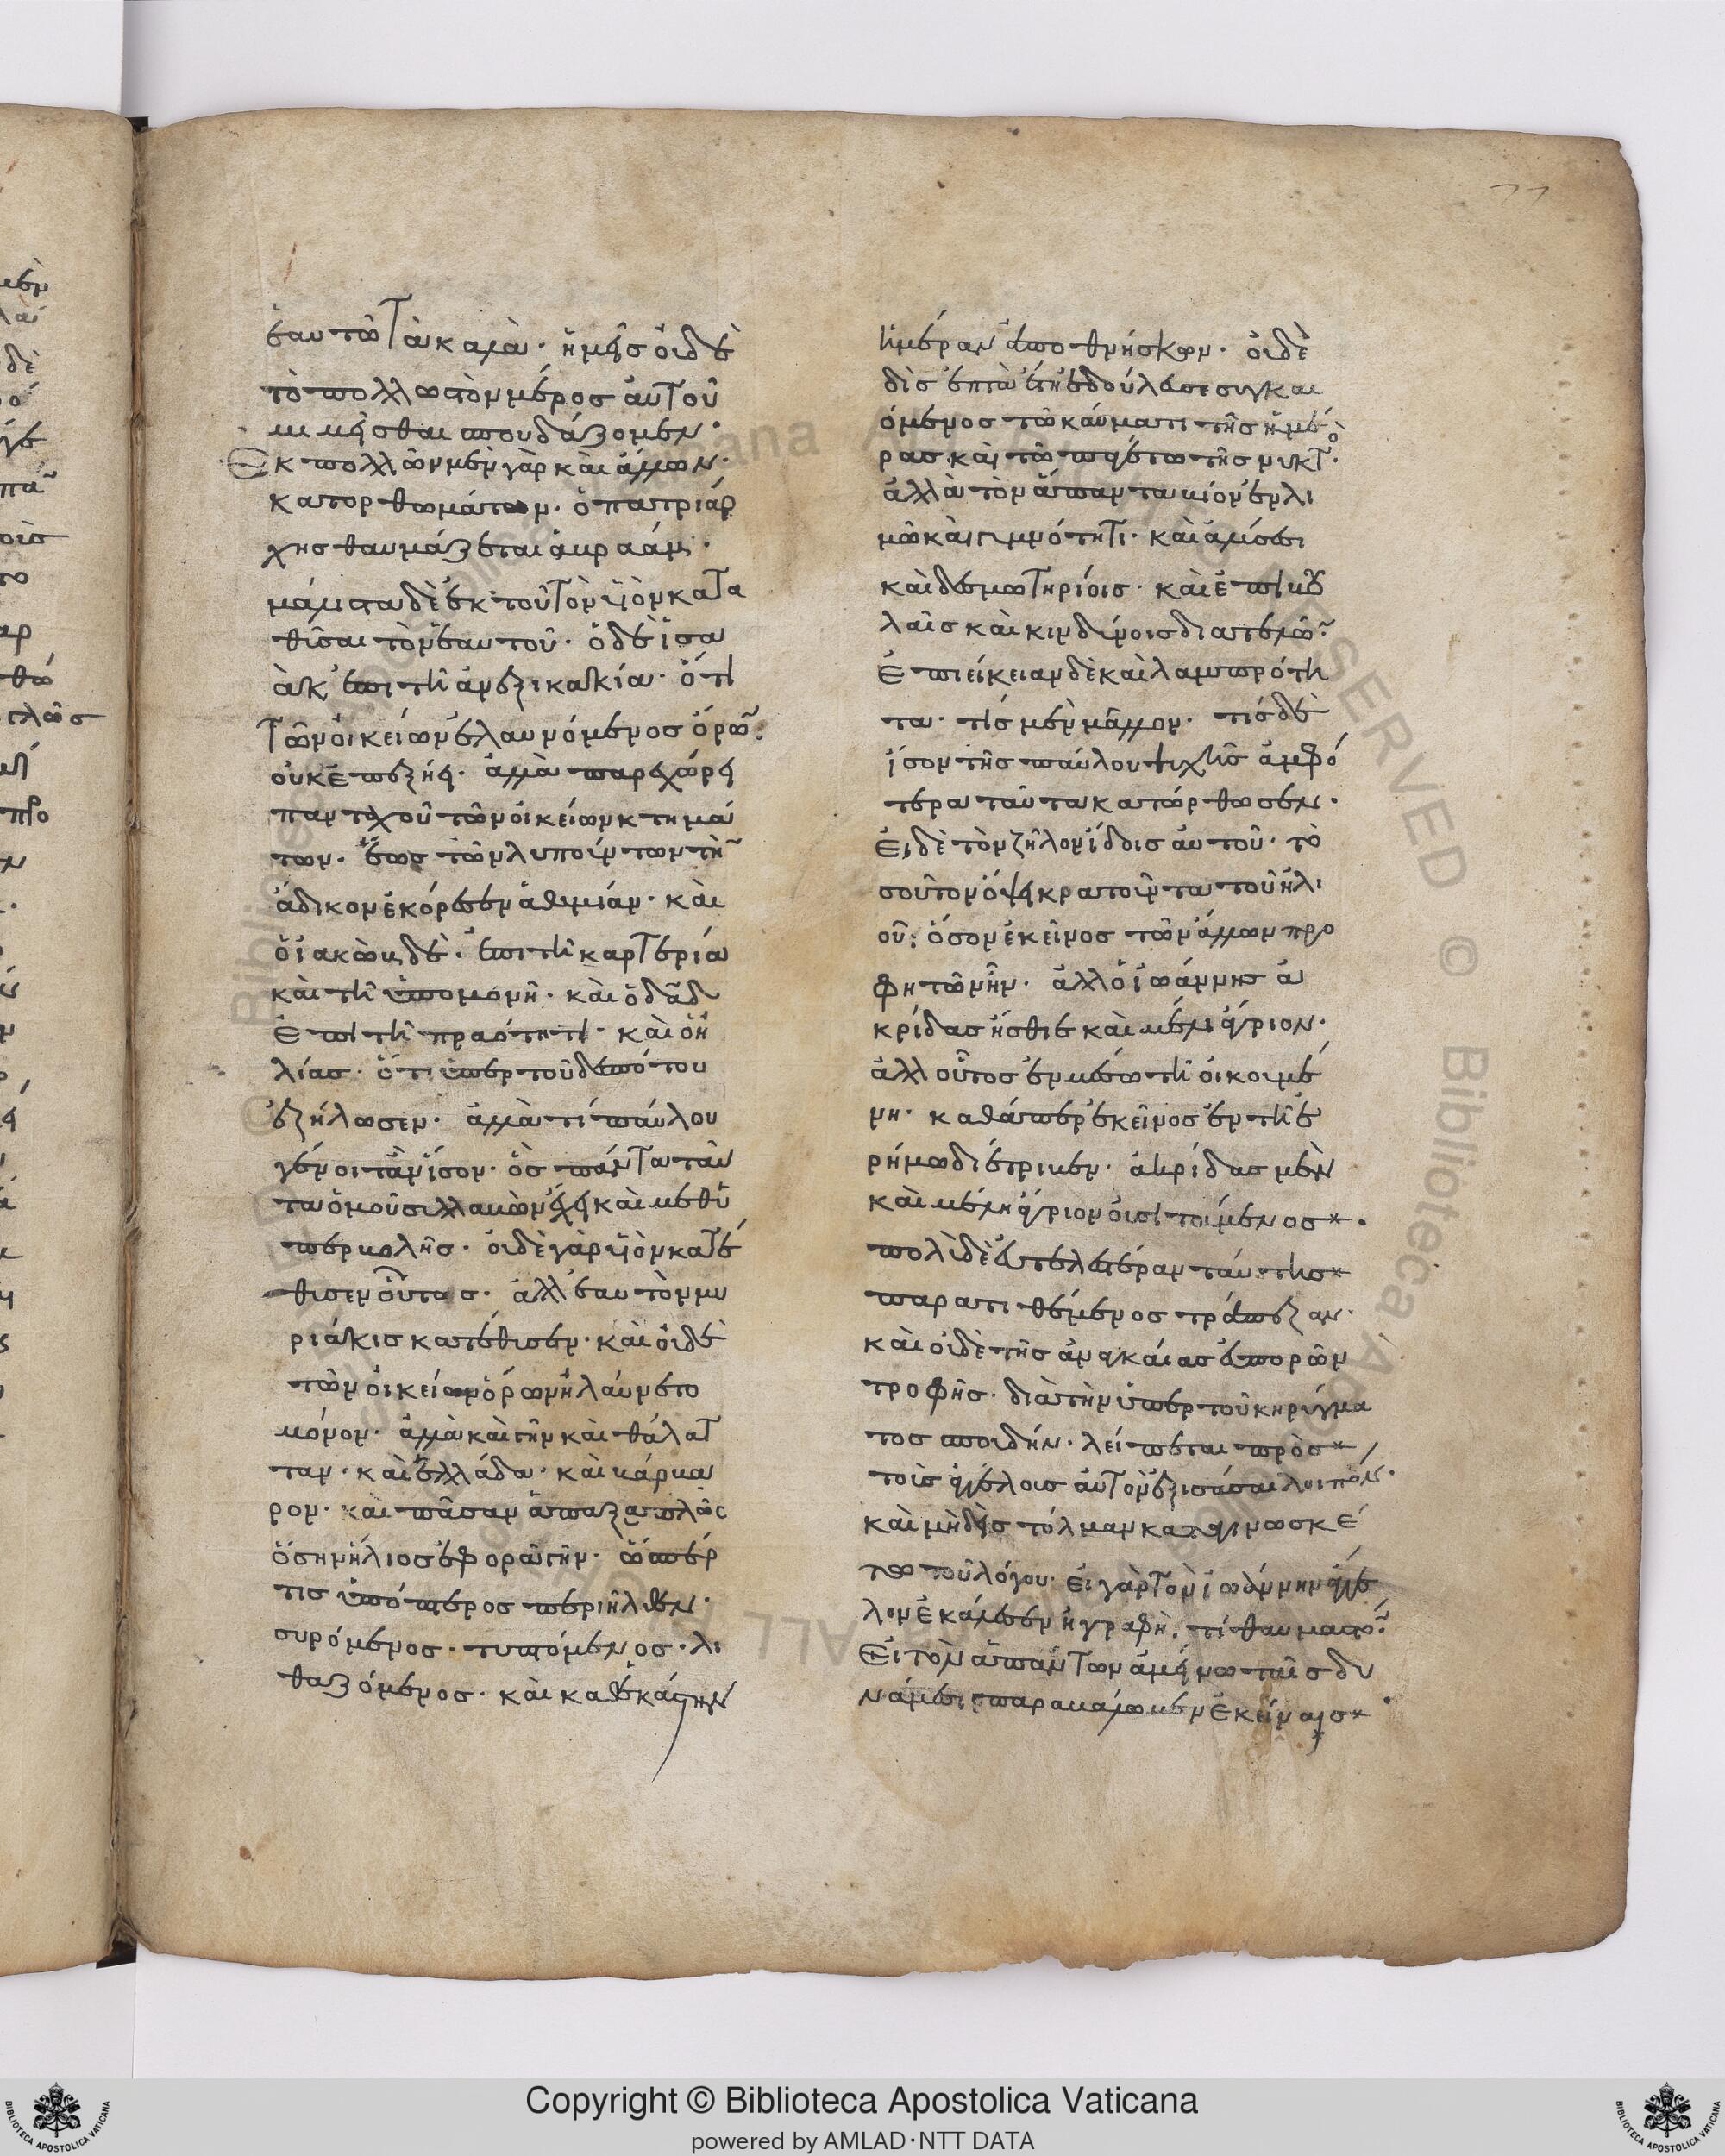 ἑαυτῶ τὰ καλὰ· ἡμεῖς οὐδὲ
τὸ πολλοστὸν μέρος αὐτοῦ
μιμεῖσθαι σπουδάζομεν·
Ἐκ πολλῶν μὲν γὰρ καὶ ἄλλων
κατορθωμάτων· ὁ πατριάρ
χης θαυμάζεται ἀβραάμ·
μάλιστα δὲ ἐκ τοῦ τὸν υἱὸν κατα
θῦσαι τὸν ἑαυτοῦ· ὁ δὲ ἰσα
ὰκ ἐπὶ τῆ ἀνεξικακία· ὅτι
τῶν οἰκείων ἐλαυνόμενος ὅρων
οὐκ ἐπεξήει· ἀλλὰ παρεχώρει
πανταχοῦ τῶν οἰκείων κτημά
των· ἕως τῶν λυπούντων τὴν
ἄδικον ἐκόρεσεν ἀθυμίαν· καὶ
ὁ ἰακὼβ δὲ· ἐπὶ τῆ καρτερία
καὶ τῆ ὑπομονῆ· καὶ ὁ δᾶδ
ἐπὶ τῆ πραότητι· καὶ ὁ ἡ
λίας· ὅτι ὑπὲρ τοῦ δεσπότου
ἐζήλωσεν· ἀλλὰ τί παύλου
γένοιτ' ἂν ἴσον· ὃς πάντα ταῦ
τα ὁμοῦ συλλαβὼν ἔχει καὶ μεθ' ὑ
περβολῆς· οὐδὲ γὰρ υἱὸν κατέ
θυσεν οὗτος· ἀλλ' ἑαυτὸν μυ
ριάκις κατέθυσεν· καὶ οὐδὲ
τῶν οἰκείων ὅρων ἠλαύνετο
μόνον· ἀλλὰ καὶ γῆν καὶ θάλατ
ταν· καὶ ἑλλάδα· καὶ βάρβα
ρον· καὶ πᾶσαν ἅπαξ ἁπλῶς
ὅσην ἥλιος ἐφορᾶ γῆν· ὥσπερ
τις ὑπόπτερος περιῆλθεν·
συρόμενος· τυπτόμενος· λι
θαζόμενος· καὶ καθεκάστην
ἡμέραν ἀποθνήσκων· οὐδὲ
δὶς ἑπτὰ ἔτη ἐδούλευσε συγκαι
όμενος τῶ καύματι τῆς ἡμέ
ρας καὶ τῶ παγετῶ τῆς νυκτὸς·
ἀλλὰ τὸν ἅπαντα βίον ἐν λι
μῶ καὶ γυμνότητι· καὶ ἁλύσεσι
καὶ δεσμωτηρίοις· καὶ ἐπιβου
λαῖς καὶ κινδύνοις διατελῶν
Ἐπιείκειαν δὲ καὶ λαμπρότη
τα· τίς μὲν μᾶλλον· τίς δὲ
ἴσον τῆς παύλου ψυχῆς ἀμφό
τερα ταῦτα κατώρθωσεν·
Εἰ δὲ τὸν ζῆλον ἴδοις αὐτοῦ· το
σοῦτον ὄψει κρατοῦντα τοῦ ἠλι
οῦ; ὅσον ἐκεῖνος τῶν ἄλλων προ
φητῶν ἦν· ἀλλ' ὁ ἰωάννης ἀ
κρίδας ἤσθιε καὶ μέλι ἄγριον·
ἀλλ' οὗτος ἐν μέσω τῆ οἰκουμέ
νη· καθάπερ ἐκεῖνος ἐν τῆ ἐ
ρήμω διέτριβεν· ἀκρίδας μὲν
καὶ μέλι ἄγριον οὐ σιτούμενος
πολὺ δὲ εὐτελεστέραν ταύτης
παρατιθέμενος τράπεζαν·
καὶ οὐδὲ τῆς ἀναγκαίας εὐπορῶν
τροφῆς· διὰ τὴν ὑπὲρ τοῦ κηρύγμα
τος σπουδήν· λείπεται πρὸς
τοὺς ἀγγέλους αὐτὸν ἐξισάσαι λοιπόν·
καὶ μηδεὶς τόλμαν καταγινωσκέ
τω τοῦ λόγου· εἰ γὰρ τὸν ἰωάννην ἄγγε
λον ἐκάλεσεν ἡ γραφὴ, τί θαυμαστὸν
Εἰ τὸν ἁπάντων ἀμείνω ταῖς δυ
νάμεσι παραβάλωμεν ἐκείναις